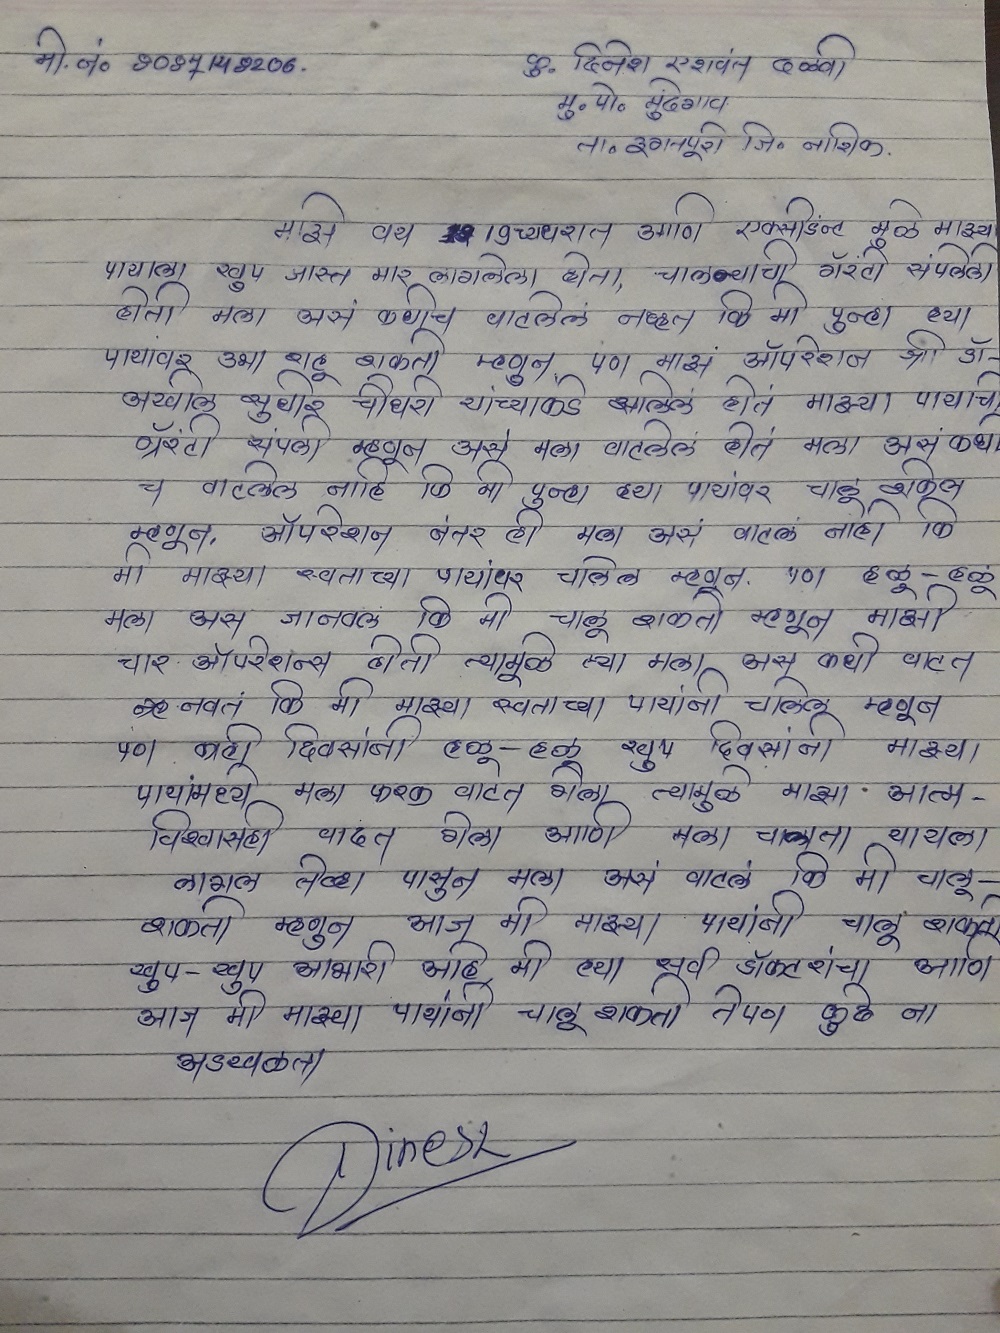 मो. नं.
कु. दिनेश एशवंत दळवी
मु. पो. मुंढेगाव
ता. इगतपूरी जि. नाशिक.
माझे वय 19 आणि एक्सीडेंन्ट मुळे माझ्या
पायाला खुप जास्त मार लागलेला होता, चालन्याची गॅरंटी संपलेली
होती मला असं कधीच वाटलेलं नव्हत कि मी पुन्हा ह्या
पायांवर उभा राहू शकतो म्हणुन. पण माझं ऑपरेशन श्री डॉ-
सुधीर चौधरी यांच्याकडे झालेलं होतं माझ्या पायाची
गॅरंटी संपली म्हणून असं मला वाटलेलं होतं मला असं कधी
च वाटलेल नाहि कि मी पुन्हा ह्या पायांवर चालू शकेल
म्हणून. ऑपरेशन नंतर ही मला असं वाटलं नाही कि
मी माझ्या स्वताच्या पायांवर चलिल म्हणून. पण हळू-हळू
मला अस जानवलं कि मी चालू शकतो म्हणून माझी
चार ऑपरेशन्स होती त्यामूळे त्या मला अस कधी वाटत
नवतं कि मी माझ्या स्वताच्या पायांनी चलिल म्हणून
पण काही दिवसांनी हळू-हळू खुप दिवसांनी माझ्या
पायांमध्ये मला फरक वाटत गेला त्यामुळे माझा आत्म-
विश्वासही वाढत गेला आणि मला चालता यायला
लागल तेव्हा पासुन मला असं वाटलं कि मी चालू-
शकतो म्हणुन आज मी माझ्या पायांनी चालू शकतो
खुप-खुप आभारी आहे मी ह्या सर्व डॉक्टरांचा आणि
आज मी माझ्या पायांनी चालू शकतो तेपण कुठे ना
अडखळता
Dinesh